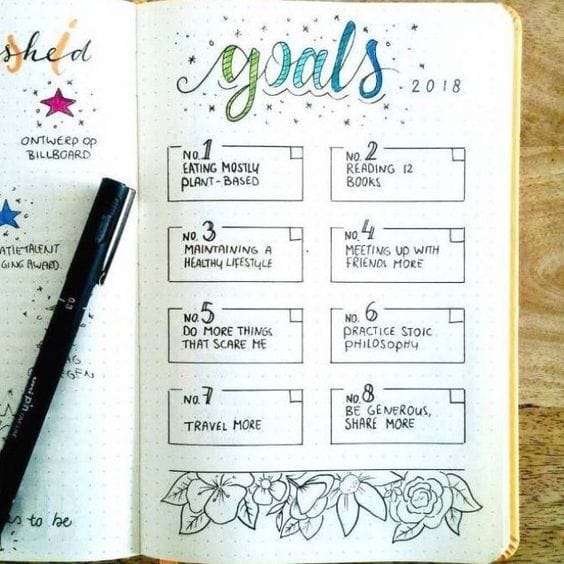 shed
ONTWERP OP
BILLBOARD
TALENT
AWARD
to be
goals
2018
NO. 1
EATING MOSTLY
PLANT-BASED
NO. 2
READING 12
BOOKS
NO. 3
MAINTAINING A
HEALTHY LIFESTYLE
NO. 4
MEETING UP WITH
FRIENDS MORE
NO. 5
DO MORE THINGS
THAT SCARE ME
NO. 6
PRACTICE STOIC
PHILOSOPHY
NO. 7
TRAVEL MORE
NO. 8
BE GENEROUS,
SHARE MORE